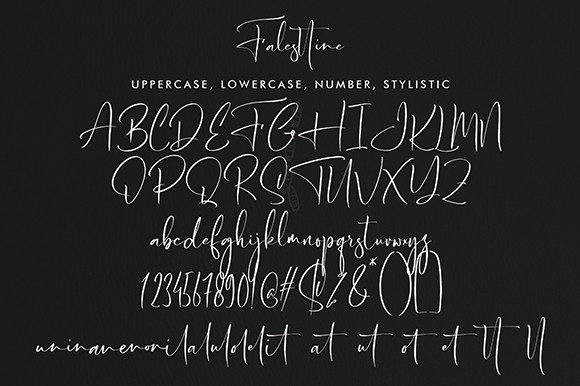 Falesttine
UPPERCASE, LOWERCASE, NUMBER, STYLISTIC
ABCDEFGHIJKLMN
OPQRSTUVXYZ
abcdefghijklmnopqrstuvwxyz
1234567890!@#$%&*()[]
at ut ot et